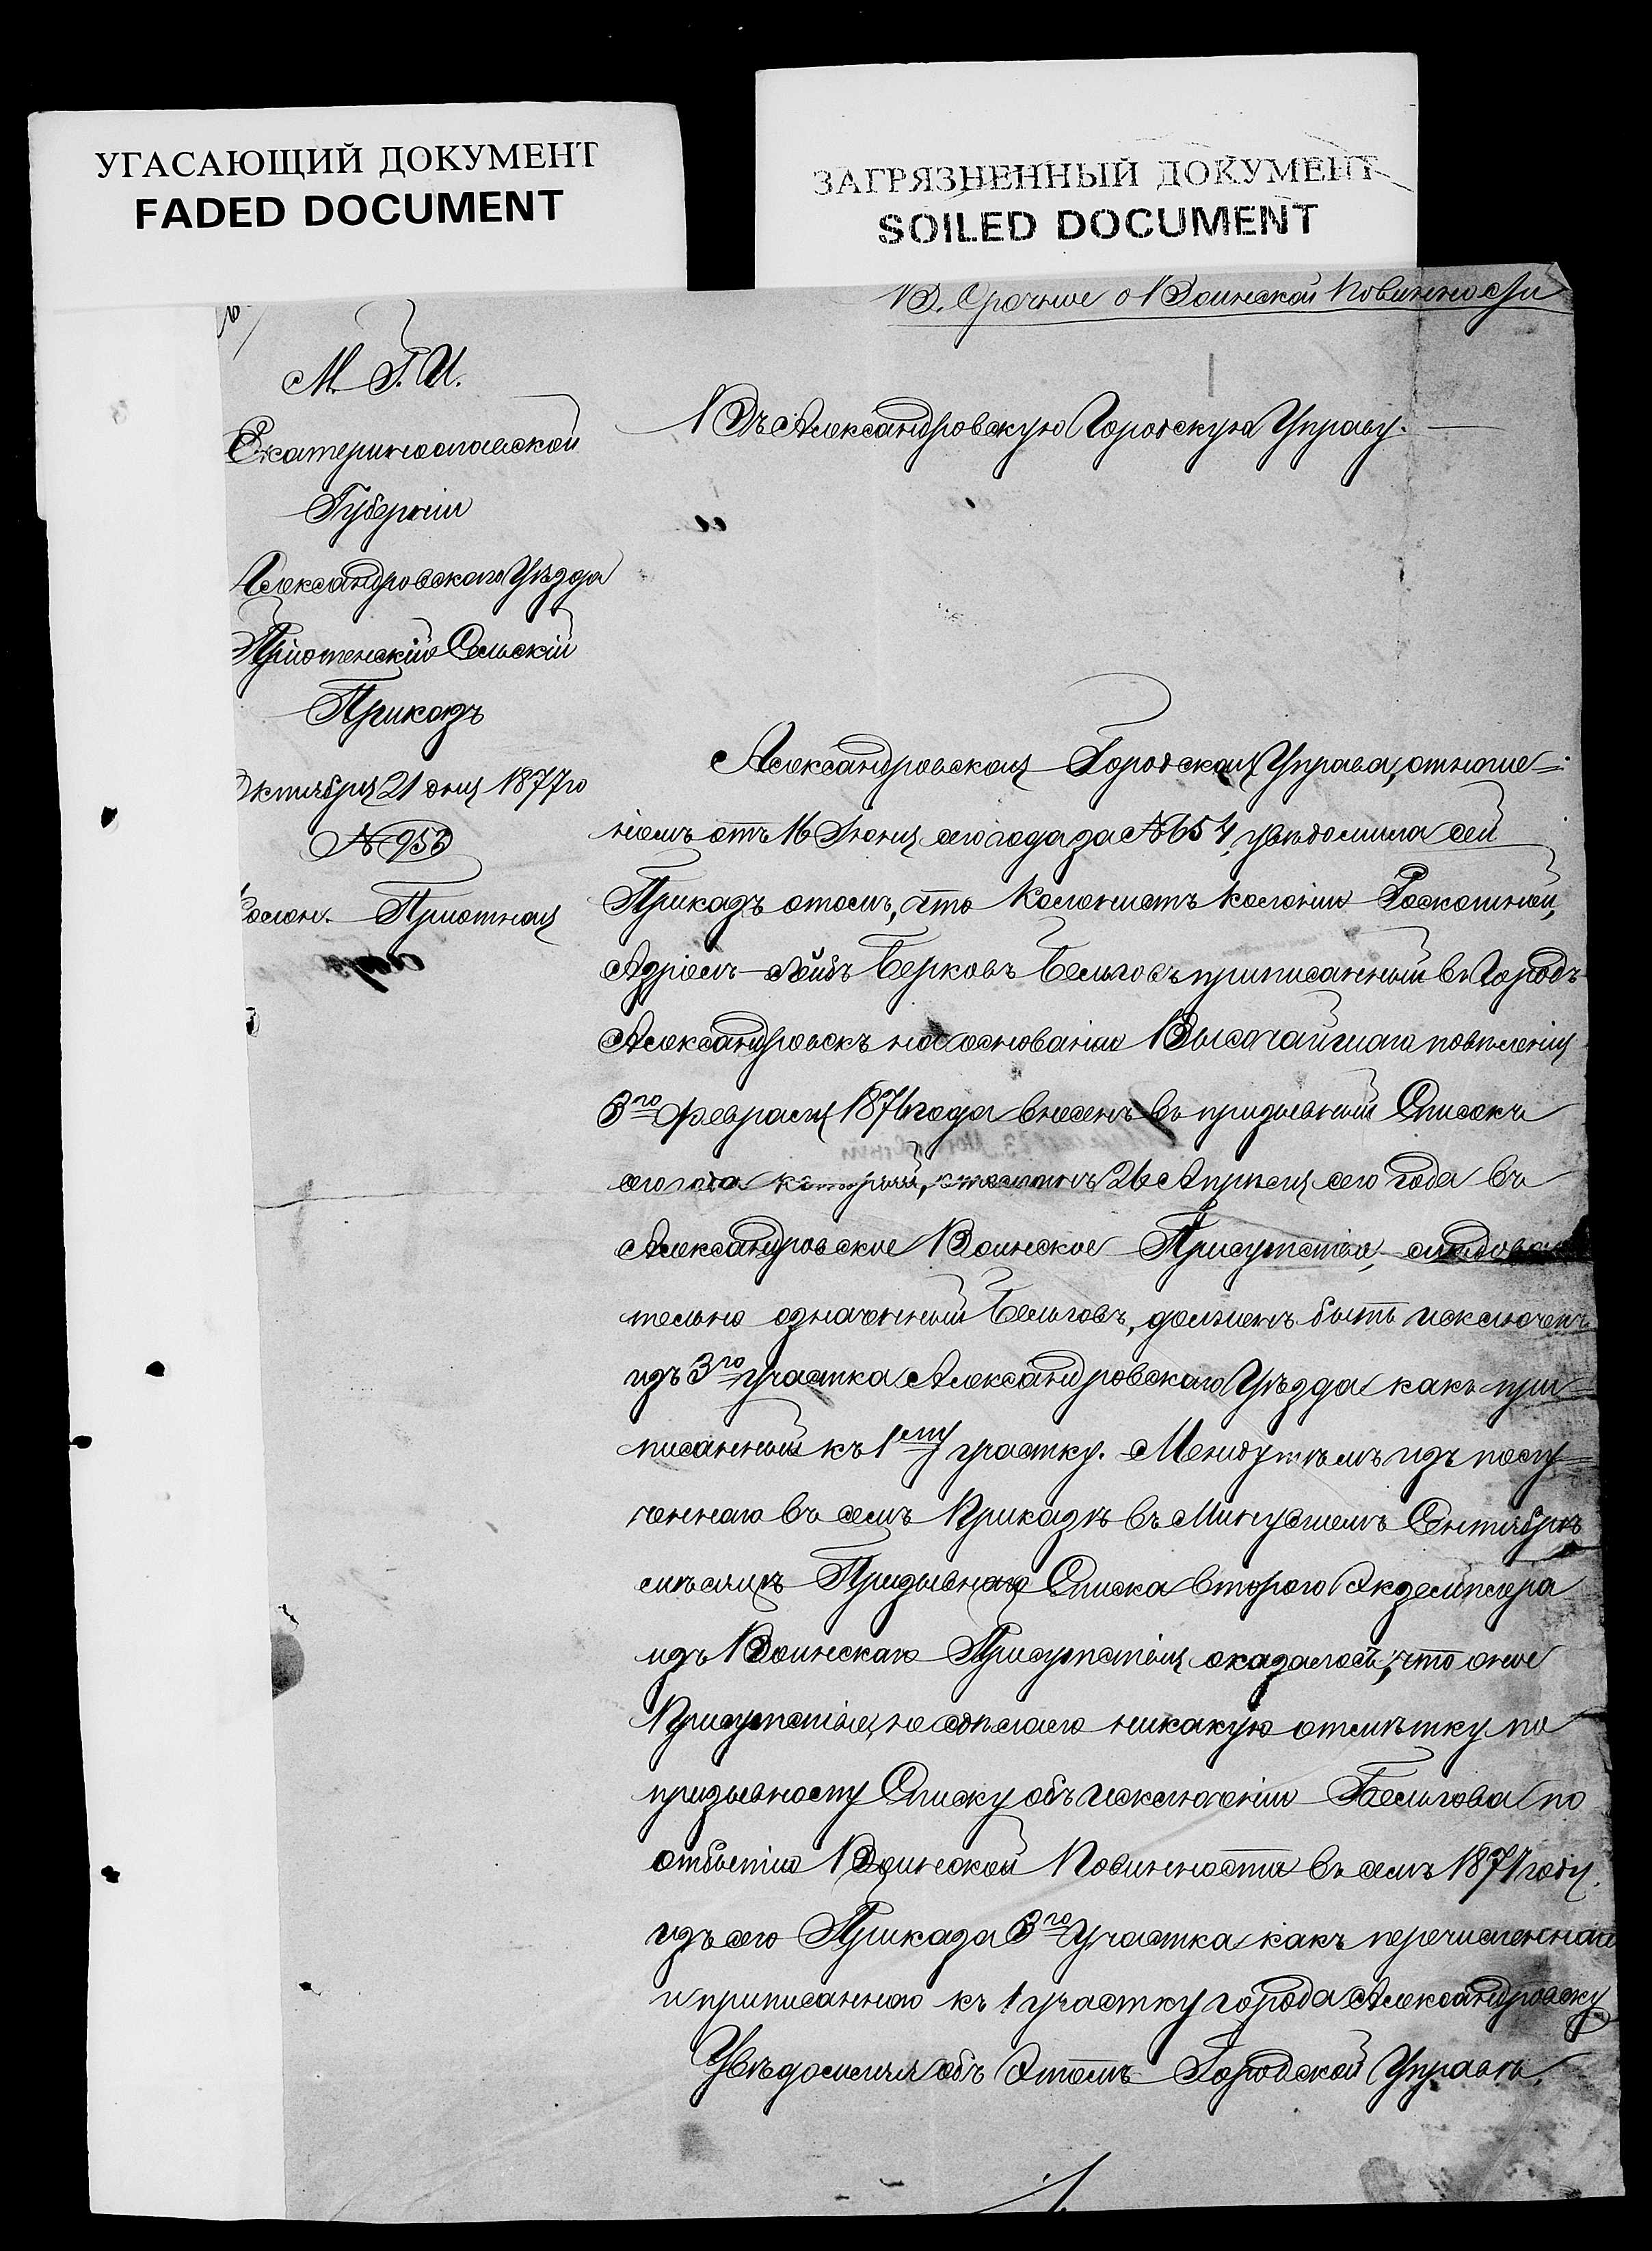 УГАСАЮЩИЙ ДОКУМЕНТ
FADED DOCUMENT
ЗАГРЯЗНЕННЫЙ ДОКУМЕНТ
SOILED DOCUMENT
В. Срочное о Воинской Повинности
М. Г. И.
Екатеринославской
Губерніи
Александровскаго Уѣзда
Пріютенскій Сельскій
Приказъ
Октября 21 дня 1877го
№ 953
Колон. Пріютная
Въ Александровскую Городскую Управу.
Александровская Городская Управа, отноше=
ніемъ отъ 16 Іюня сего года за № 654, увѣдомила сей
Приказъ о томъ, что Колонистъ колоніи Роскошной,
Азріель-Лейбъ Берковъ Бельговъ приписанный въ Городъ
Александровскъ на основаніи Высочайшаго повѣленія
3го Февраля 187 года внесенъ въ призывный Списокъ
сего года который, 26 Апрѣля сего года въ
Александровское Воинское Присутствіе, слѣдова
тельно означенный Бельговъ, долженъ быть исключенъ
изъ 3го участка Александровскаго Уѣзда какъ при=
писанный къ 1му участку. Между тѣмъ изъ полу=
ченнаго въ семъ Приказѣ въ Минувшемъ Сентябрѣ
мѣсяцѣ Призывнаго Списка втораго Экземпляра
изъ Воинскаго Присутствія оказалось, что оное
Присутствіе, не сдѣлало никакую отмѣтку по
призывному Списку объ исключеніи Бельгова по
отбытію Воинской Повинности въ семъ 1877 году.
изъ сего Приказа 3го Участка какъ перечисленнаго
и приписаннаго къ 1 участку города Александровску
Увѣдомляя объ Этомъ Городской Управѣ,